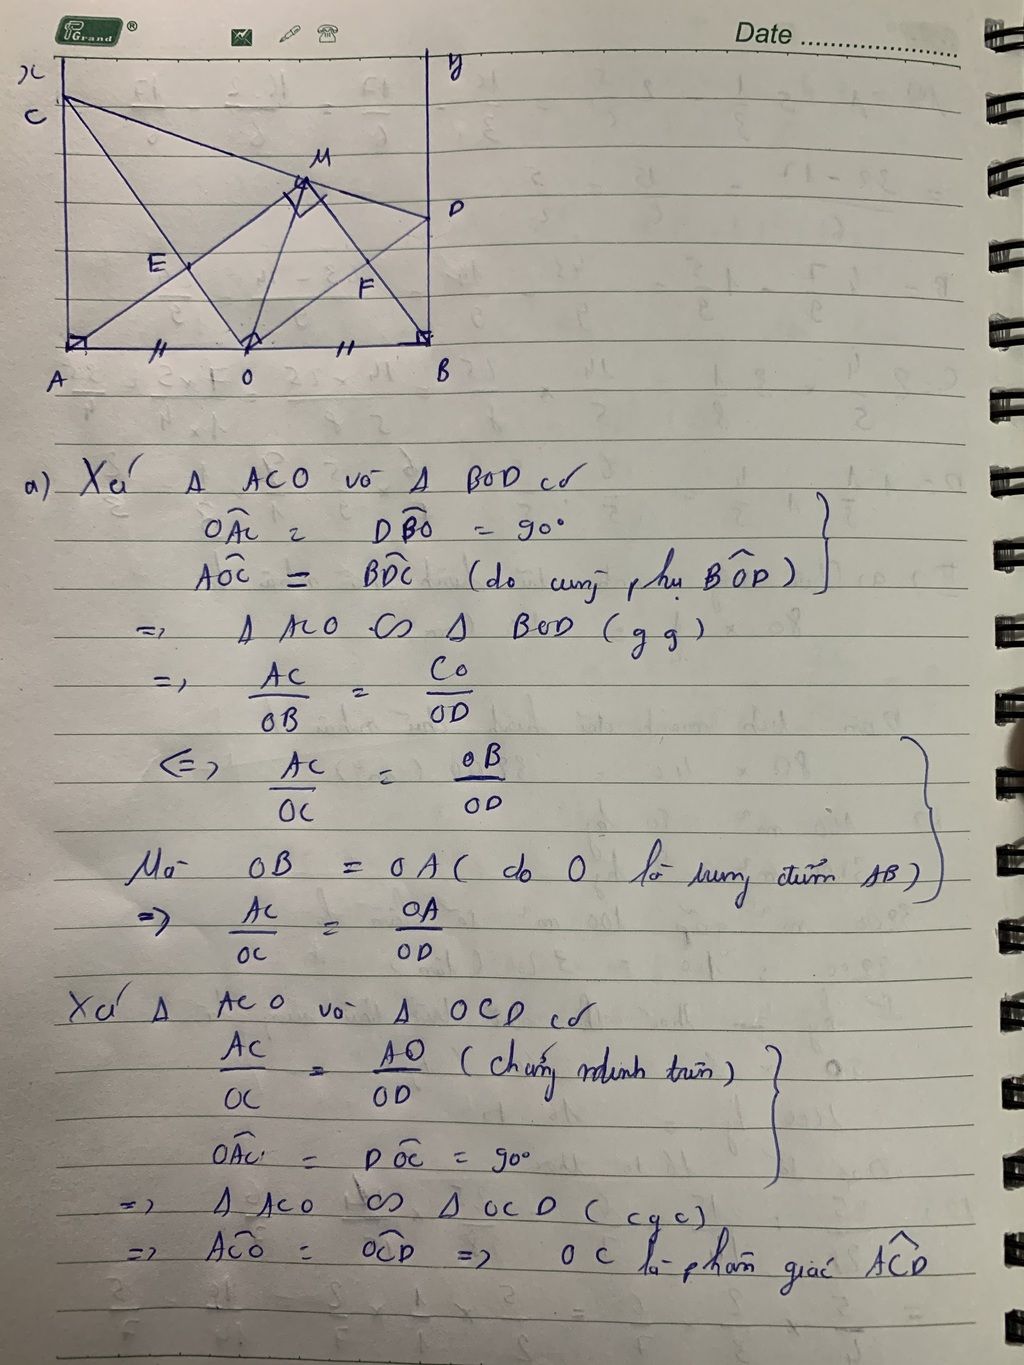 Grand ® Date
x y
C
M
D
E
F
A O B
a) Xét Δ ACO và Δ BOD có
OÂC = DB̂O = 90°
AÔC = BD̂C (do cùng phụ BÔD)
=> Δ ACO ∽ Δ BOD (gg)
=> AC/OB = CO/OD
<=> AC/OC = OB/OD
Mà OB = OA (do O là trung điểm AB)
=> AC/OC = OA/OD
Xét Δ ACO và Δ OCD có
AC/OC = AO/OD (chứng minh trên)
OÂC = DÔC = 90°
=> Δ ACO ∽ Δ OCD (cgc)
=> AĈO = OĈD => OC là phân giác AĈD